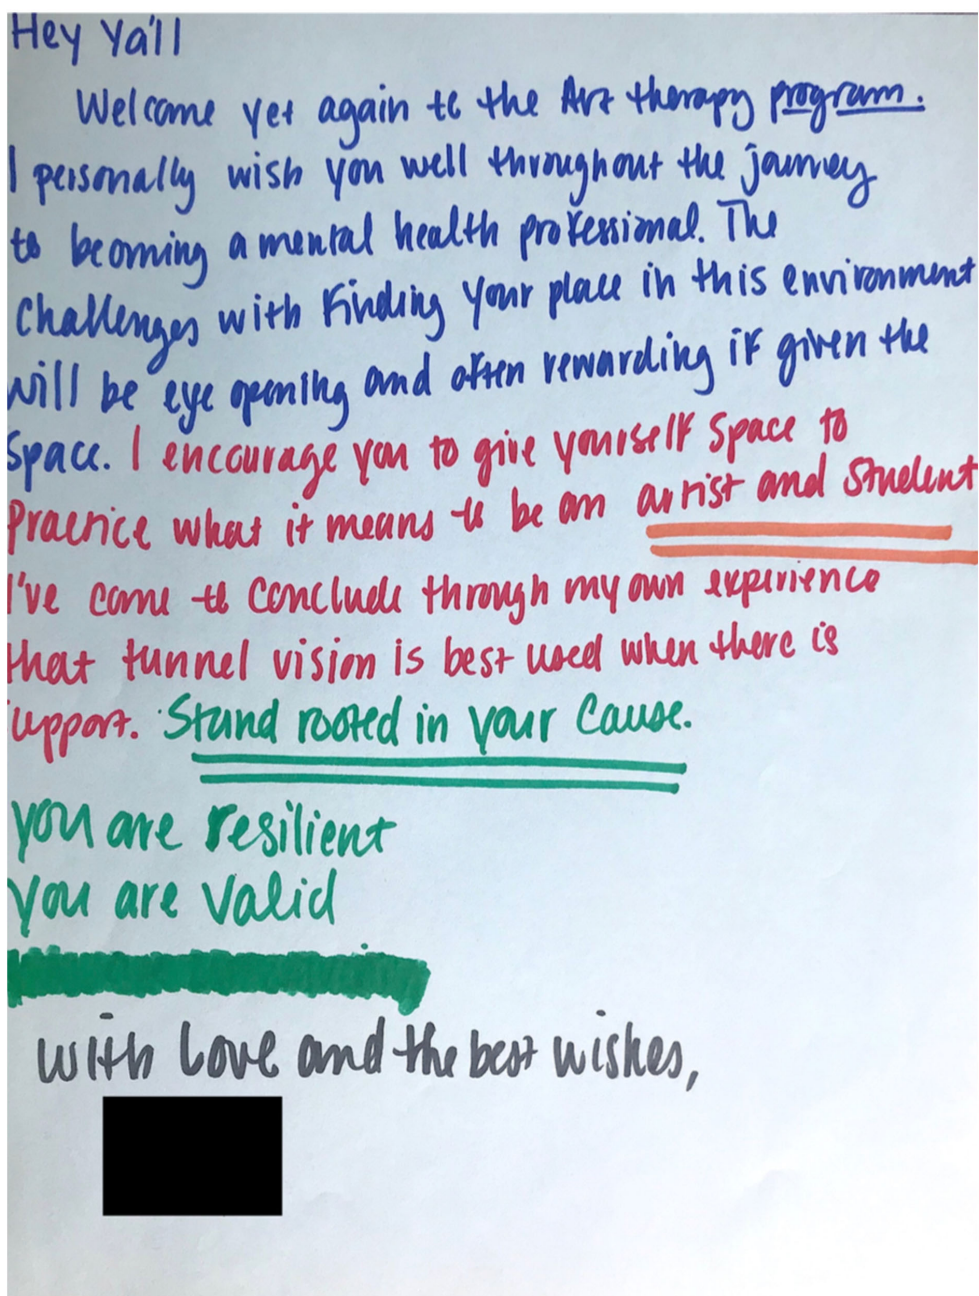 Hey Ya'll
Welcome yet again to the Art therapy program.
I personally wish you well throughout the journey
to becoming a mental health professional. The
Challenges with Finding your place in this environment
will be eye opening and often rewarding if given the
Space. I encourage you to give yourself Space to
Practice what it means to be an artist and Student
I've come to conclude through my own experience
that tunnel vision is best used when there is
support. Stand rooted in your Cause.
you are resilient
you are Valid
with love and the best wishes,